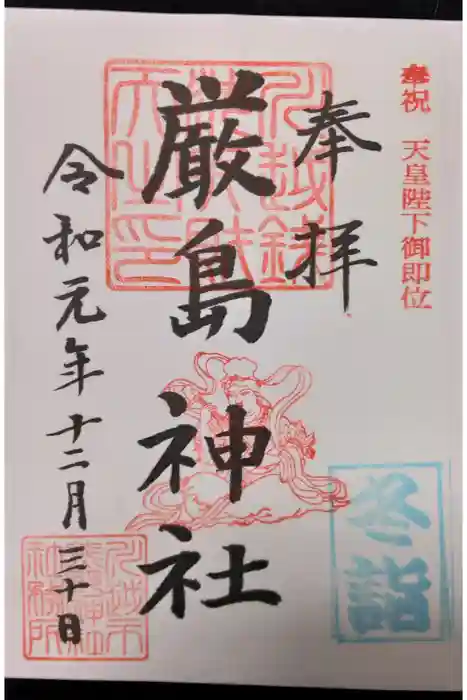 奉祝 天皇陛下御即位
奉拝
厳島神社
令和元年十二月三十日
冬詣